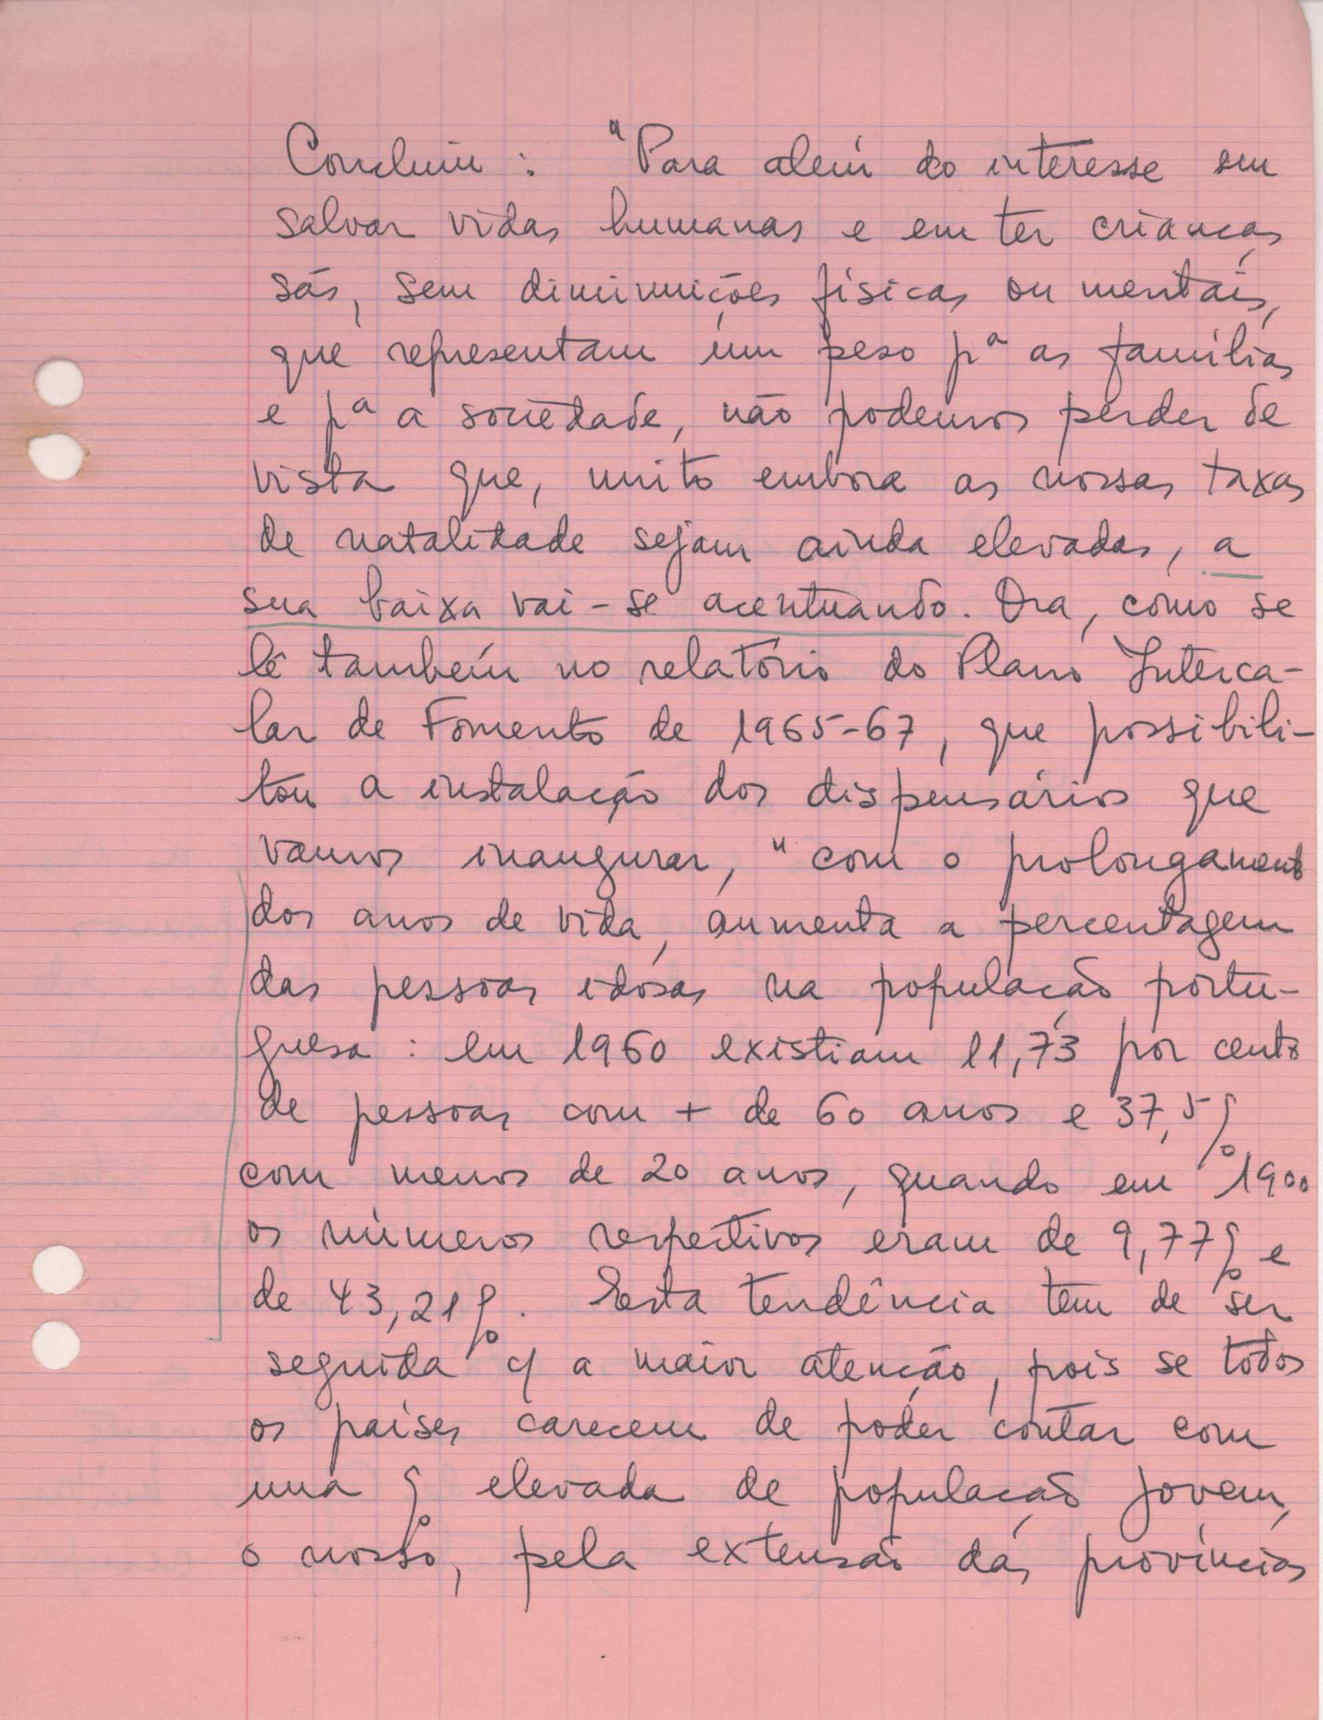 Concluiu : "Para além do interesse em
salvar vidas humanas e em ter crianças
sãs, sem diminuições físicas ou mentais,
que representam um peso pª as famílias
e pª a sociedade, não podemos perder de
vista que, muito embora as nossas taxas
de natalidade sejam ainda elevadas, a
sua baixa vai-se acentuando. Ora, como se
lê também no relatório do Plano Interca-
lar de Fomento de 1965-67, que possibili-
tou a instalação dos dispensários que
vamos inaugurar, "com o prolongamento
dos anos de vida, aumenta a percentagem
das pessoas idosas na população portu-
guesa : em 1960 existiam 11,73 por cento
de pessoas com + de 60 anos e 37,5%
com menos de 20 anos, quando em 1900
os números respectivos eram de 9,77% e
de 43,21%. Esta tendência tem de ser
seguida c/ a maior atenção, pois se todos
os países carecem de poder contar com
uma % elevada de população jovem,
o nosso, pela extensão das províncias